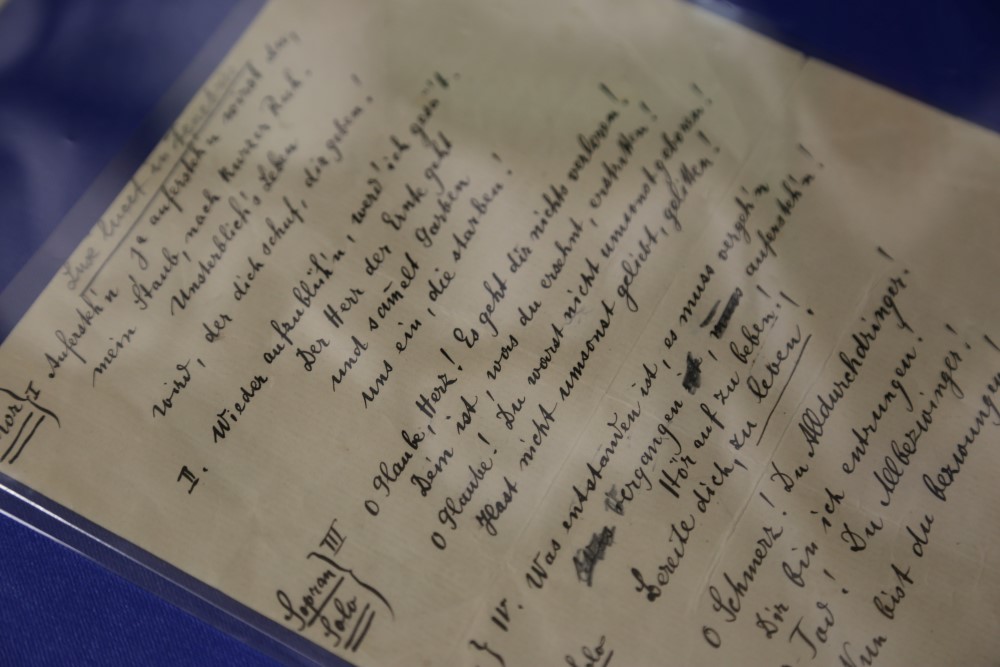 Chor I
Aufersteh'n ja aufersteh'n wirst du,
mein Staub, nach kurzer Ruh.
Unsterblich's Leben
wird, der dich schuf, dir geben!
II. Wieder aufzublüh'n, werd' ich gesä't.
Der Herr der Ernte geht
und sam̅elt Garben
uns ein, die starben!
Sopran Solo III
O Glaube, Herz! Es geht dir nichts verloren!
Dein ist, was du ersehnt, erstritten!
O Glaube! Du warst nicht umsonst geboren!
Hast nicht umsonst geliebt, gelitten!
IV. Was entstanden ist, es muss vergeh'n
Vergangen, aufersteh'n!
Hör' auf zu beben!
Bereite dich, zu leben!
O Schmerz! Du Alldurchdringer!
Dir bin ich entrungen!
O Tod! Du Allbezwinger!
Nun bist du bezwungen